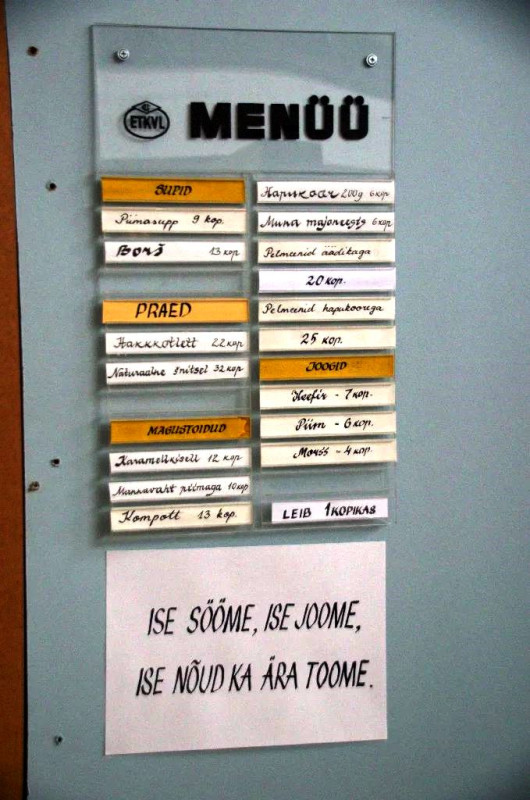 ETKVL
MENÜÜ
SUPID
Piimasupp 9 kop.
Borš 13 kop
PRAED
Hakkkotlett 22 kop
Naturaalne šnitsel 32 kop
MAGUSTOIDUD
Karamellkisell 12 kop
Mannavaht piimaga 10 kop
Kompott 13 kop.
Hapukoor 200g 6 kop
Muna majoneesis 6 kop
Pelmeenid äädikaga
20 kop.
Pelmeenid hapukoorega
25 kop.
JOOGID
Keefir - 7 kop.
Piim - 6 kop.
Morss - 4 kop.
LEIB 1 KOPIKAS
ISE SÖÖME, ISE JOOME,
ISE NÕUD KA ÄRA TOOME.